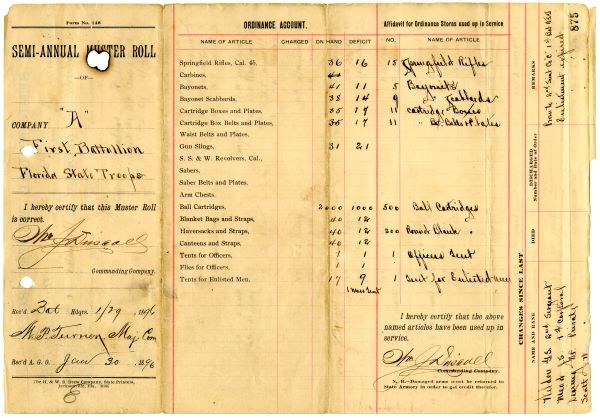 Form No. 148
SEMI-ANNUAL MUSTER ROLL
—OF—
"A"
COMPANY
First Battallion
Florida State Troops
I hereby certify that this Muster Roll
is correct.
Commanding Company.
Rec'd Bat Hdqrs. 1/29 1896
M. P. Turner Maj. Com
Rec'd A. G. O. Jan 30 1896
The H. & W. B. Drew Company, State Printers,
Jacksonville, Fla.
ORDINANCE ACCOUNT.
NAME OF ARTICLE CHARGED ON HAND DEFICIT.
Springfield Rifles, Cal. 45, 36 16
Carbines,
Bayonets, 41 11
Bayonet Scabbards, 38 14
Cartridge Boxes and Plates, 35 17
Cartridge Box Belts and Plates, 35 17
Waist Belts and Plates.
Gun Slings, 31 21
S. S. & W. Revolvers, Cal.,
Sabers,
Saber Belts and Plates.
Arm Chests.
Ball Cartridges, 2000 1000
Blanket Bags and Straps, 40 12
Haversacks and Straps, 40 12
Canteens and Straps, 40 12
Tents for Officers, 1 1
Flies for Officers. 1 1
Tents for Enlisted Men, 17 9
Affidavit for Ordinance Stores used up in Service
NO. NAME OF ARTICLE.
15 Springfield Rifles
5 Bayonets
9 " Scabbards
11 Cartridge Boxes
11 " Bx. Belts & Plates
500 Ball Cartridges
200 Round Blank "
1 Officers Tent
1 Tent for Enlisted men
I hereby certify that the above
named articles have been used up in
service.
Commanding Company.
N. B.—Damaged arms must be returned to
State Armory in order to get credit therefor.
CHANGES SINCE LAST
NAME AND RANK
DIED
DISCHARGED
Number and Date of Order
REMARKS
875